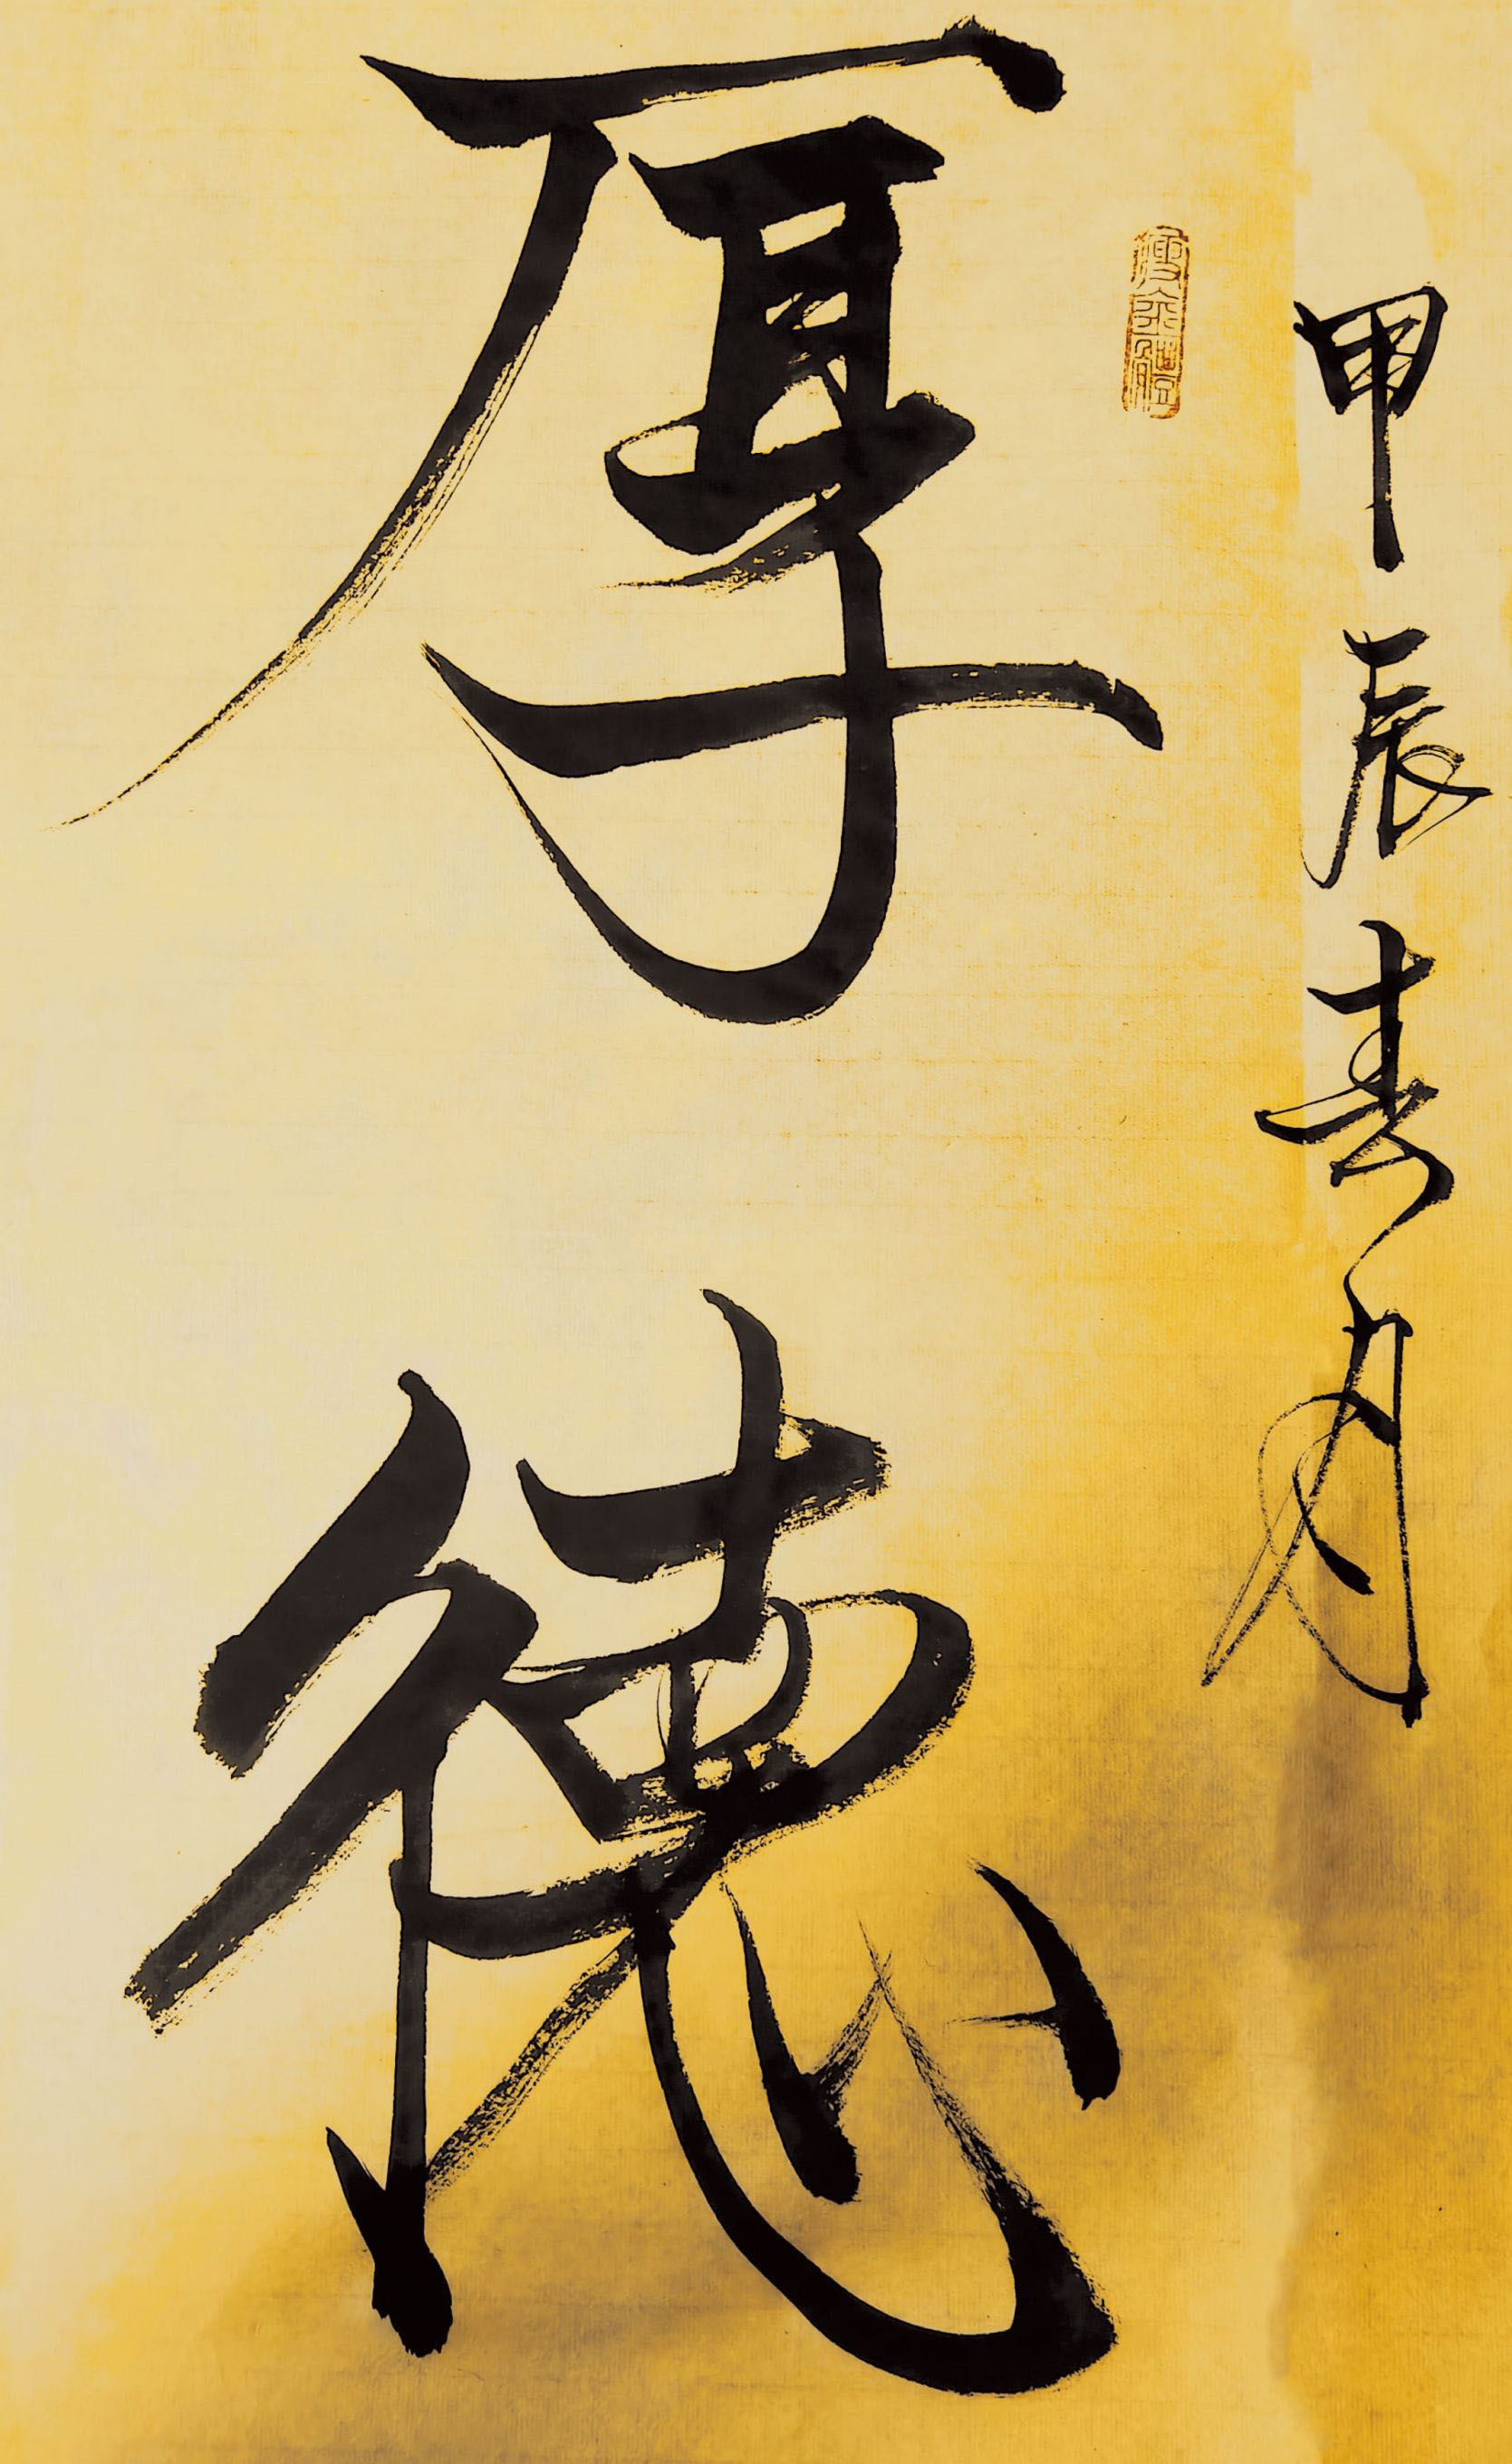 甲辰春月
厚德